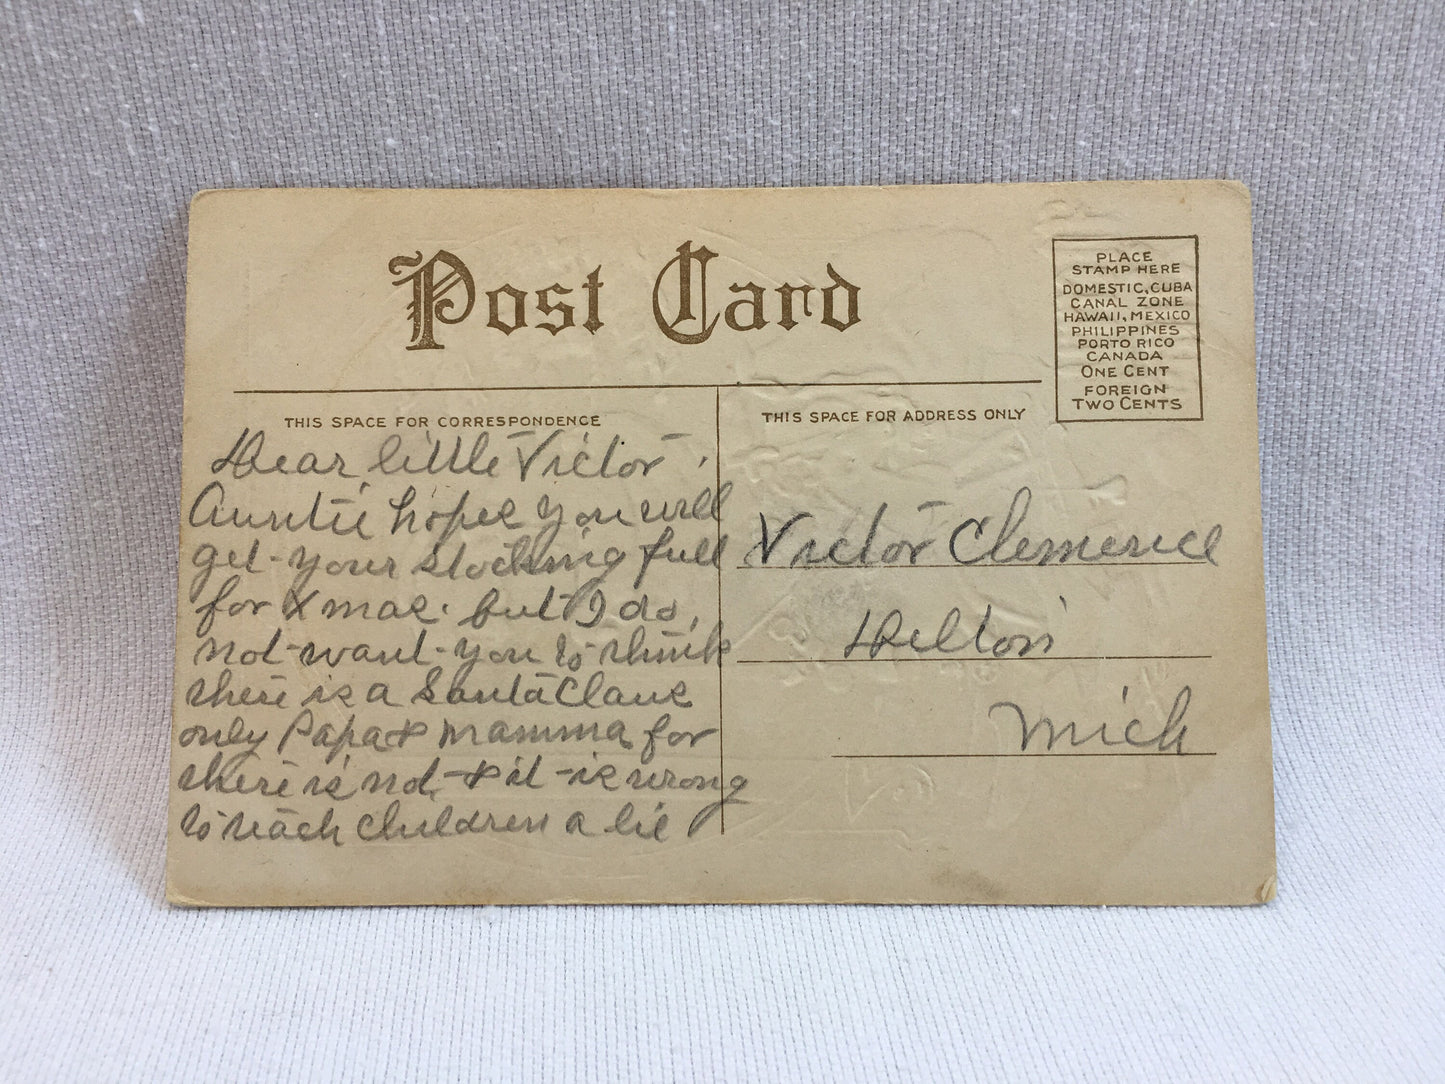 Post Card
PLACE
STAMP HERE
DOMESTIC, CUBA
CANAL ZONE
HAWAII, MEXICO
PHILIPPINES
PORTO RICO
CANADA
ONE CENT
FOREIGN
TWO CENTS
THIS SPACE FOR CORRESPONDENCE
Dear little Victor.
Auntie hopes you will
get your stocking full
for Xmas. but I do,
not want you to think
there is a Santa Claus
only Papa & Mamma for
there is not, & it is wrong
to teach children a lie
THIS SPACE FOR ADDRESS ONLY
Victor Clemence
Delton
Mich